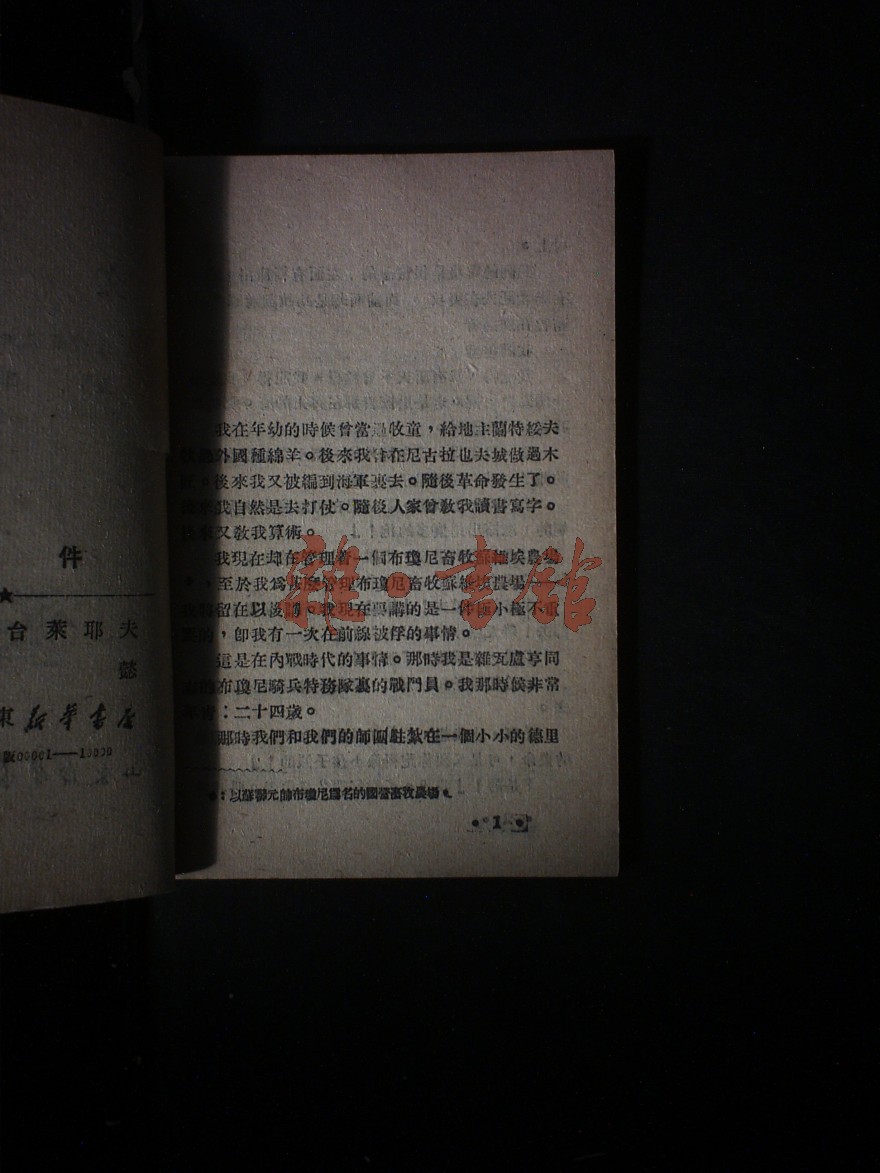 件
★
台萊耶夫
懿
東新華書店
版00001——10000
我在年幼的時候曾當過牧童，給地主蘭特綏夫
外國種綿羊。後來我曾在尼古拉也夫城做過木
。後來我又被編到海軍裏去。隨後革命發生了。
我自然是去打仗。隨後人家曾教我讀書寫字。
後來又教我算術。
我現在却在管理着一個布瓊尼畜牧蘇維埃農場
，至於我爲甚麼管理布瓊尼畜牧蘇維埃農場——
留在以後講。我現在要講的是一件極小極不重
要的，卽我有一次在前線被俘的事情。
這是在內戰時代的事情。那時我是雜瓦處享同
的布瓊尼騎兵特務隊裏的戰鬥員。我那時候非常
年青：二十四歲。
那時我們和我們的師團駐紮在一個小小的德里
：以蘇聯元帥布瓊尼爲名的國營畜牧農場。
1
雜·書館